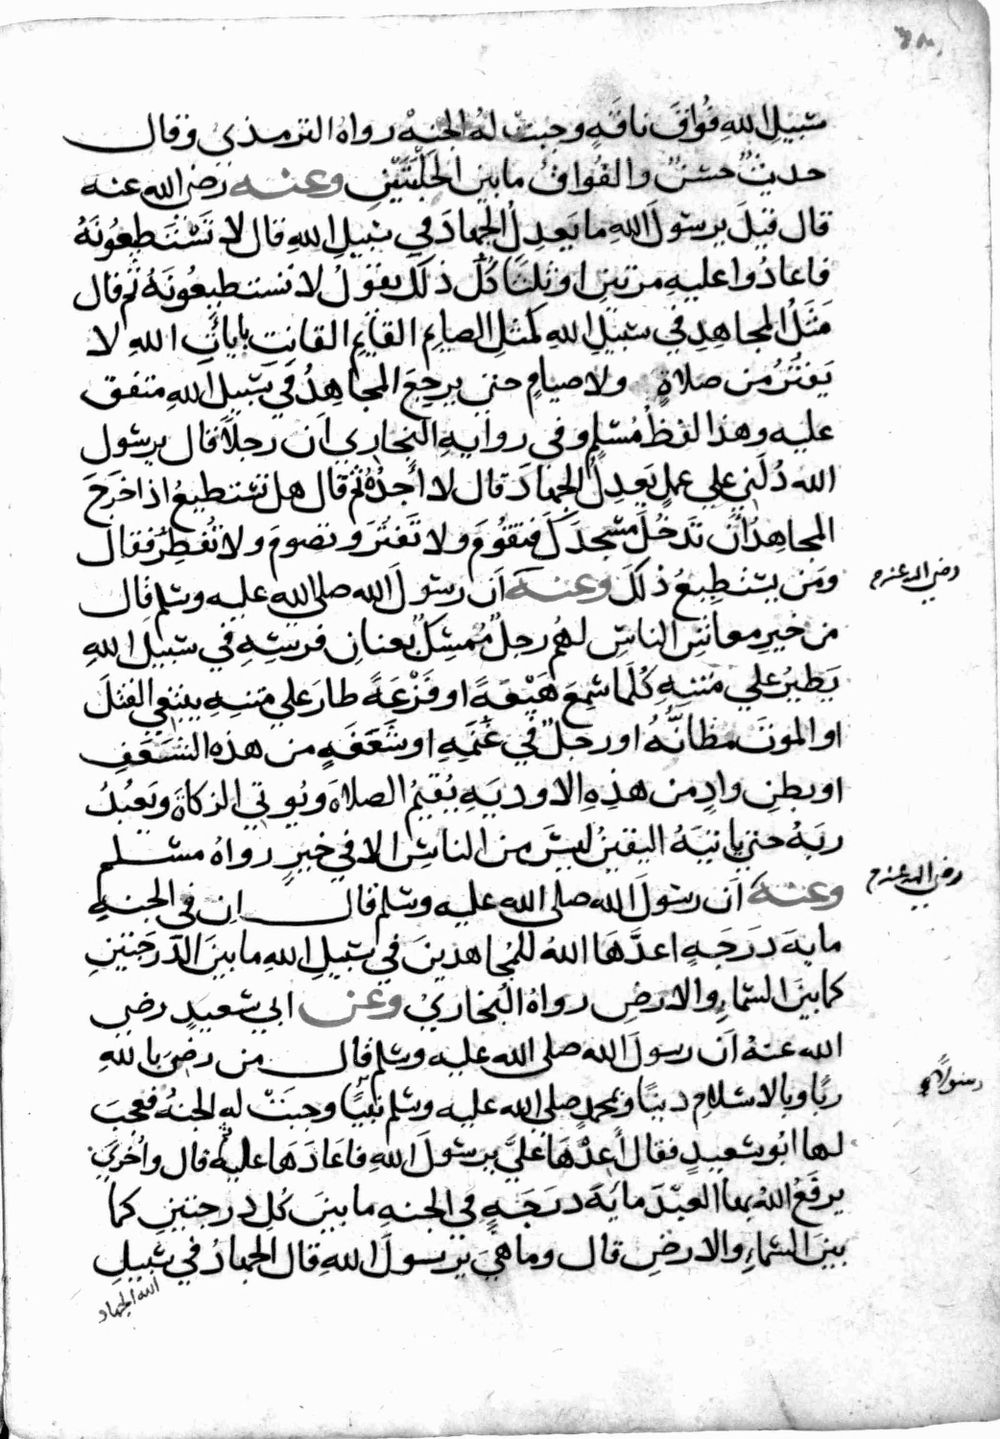 سبيل الله فُواقَ ناقةٍ وجبتْ لهُ الجنةُ رواهُ الترمذي وقال
حديثٌ حسنٌ والفُواقُ ما بين الحَلْبَتَيْنِ وعنه رضي الله عنه
قال قيلَ يرسولَ الله ما يَعدِلُ الجهادَ في سبيلِ اللهِ قال لا تَسْتَطِيعُونَهُ
فاعادُوا عليهِ مرتينِ او ثلثًا كُلّ ذلكَ يقولُ لا تستطيعُونَهُ ثم قال
مَثَلُ المجاهِدِ في سبيلِ اللهِ كمثلِ الصايمِ القايمِ القانتِ بايات اللهِ لا
يَفتُرُ من صلاةٍ ولا صيامٍ حتى يرجعَ المجاهِدُ في سبيلِ اللهِ متفق
عليه وهذا لفظُ مُسْلمٍ وفي روايةِ البخاري ان رجلاً قال يرسول
الله دُلَني علي عملٍ يَعدِلُ الجهادَ قال لا أجدُهُ ثم قال هل تستطيعُ اذا خرجَ
المجاهدُ أن تدخُلَ مسجدَكَ فتقُومَ ولا تَفتُرَ وتصومَ ولا تُفطِرَ فقال
ومَن يستطِيعُ ذلكَ وعنه ان رسولَ الله صلى الله عليه وسلم قال
رضي الله عنه م
من خيرِ معاشِ الناسِ لهُم رجلٌ مُمسِكٌ بعنانِ فرسِهِ في سبيلِ اللهِ
يَطيرُ علي مَتنهِ كُلَّما سمعَ هَيْعَةً او فَزْعَةً طارَ علي متنهِ يبتغي القتلَ
او الموتَ مظانَّهُ او رجلٌ في غُنَيْمَةٍ او شَعَفَةٍ من هذه الشَعَفِ
او بطنِ وادٍ من هذِهِ الاوديةِ يُقيمُ الصلاةَ ويُوتي الزكاةَ ويَعبُدُ
ربَهُ حتى ياتيَهُ اليقينُ ليسَ من الناسِ الا في خيرٍ رواهُ مسلم
وعنهُ ان رسولَ الله صلى الله عليه وسلم قال ان في الجنةِ
رضي الله عنه م
مايةَ درَجةٍ اعدَّهَا اللهُ للمُجاهدينَ في سبيلِ اللهِ ما بينَ الدَرجتينِ
كما بينَ السَّماءِ والارضِ رواهُ البُخاريُ وعن ابي سعيدٍ رضي
الله عنهُ ان رسولَ الله صلى الله عليه وسلم قال من رضِيَ باللهِ
ربًا وبالاسلامِ دينًا وبمحمدٍ صلى الله عليه وسلم نبيًا وجبتْ له الجنةُ فعجبَ
رسولاً م
لها ابُو سعيدٍ فقال أَعِدْهَا عَليَّ يرسُولَ اللهِ فاعَادَهَا عليهِ ثم قال واُخري
يرفَعُ اللهُ بها العبْدَ مايَةَ درجَةٍ في الجنةِ ما بينَ كُلِ درجتينِ كما
بينَ السَّماءِ والارضِ قال وما هيَ يرسولَ اللهِ قال الجهادُ في سبيلِ
الله الجهاد